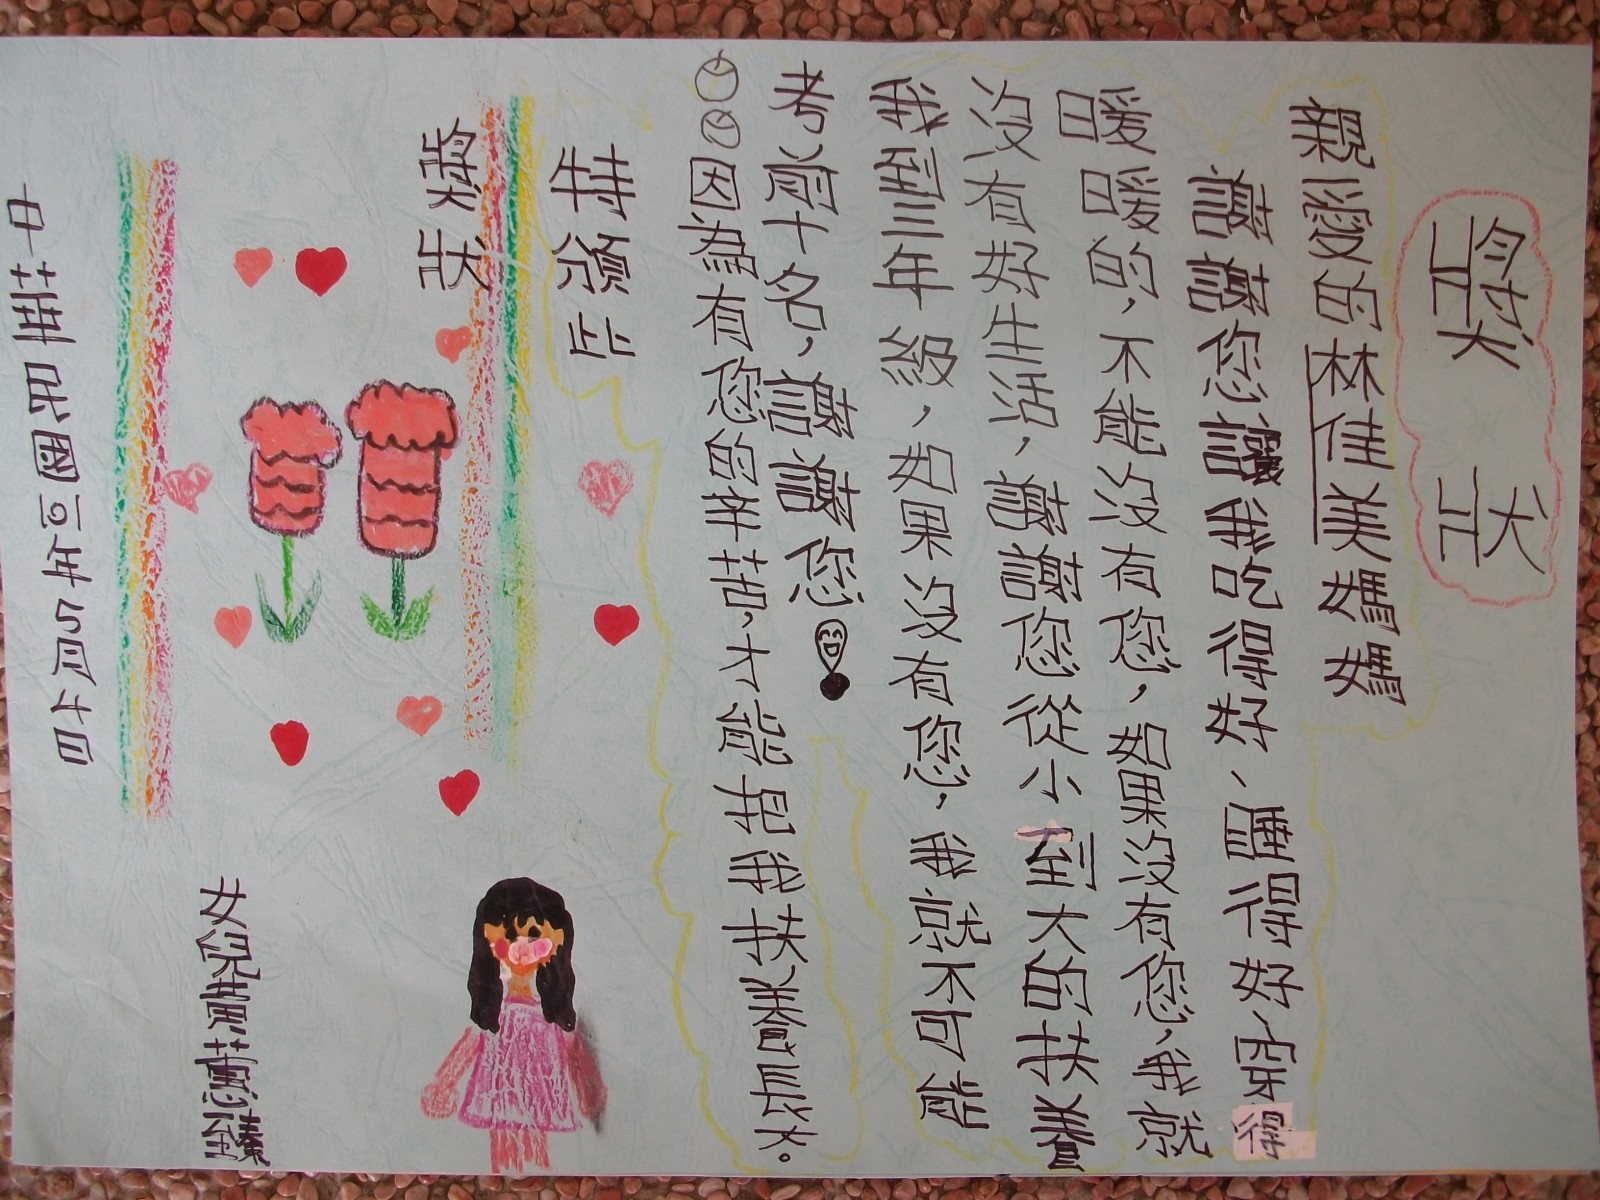 獎狀
親愛的林佳美媽媽
謝謝您讓我吃得好、睡得好、穿得
暖暖的，不能沒有您，如果沒有您，我就
沒有好生活，謝謝您從小到大的扶養
我到三年級，如果沒有您，我就不可能
考前十名，謝謝您！
因為有您的辛苦，才能把我扶養長大。
特頒此
獎狀
女兒
中華民國一百年5月十四日